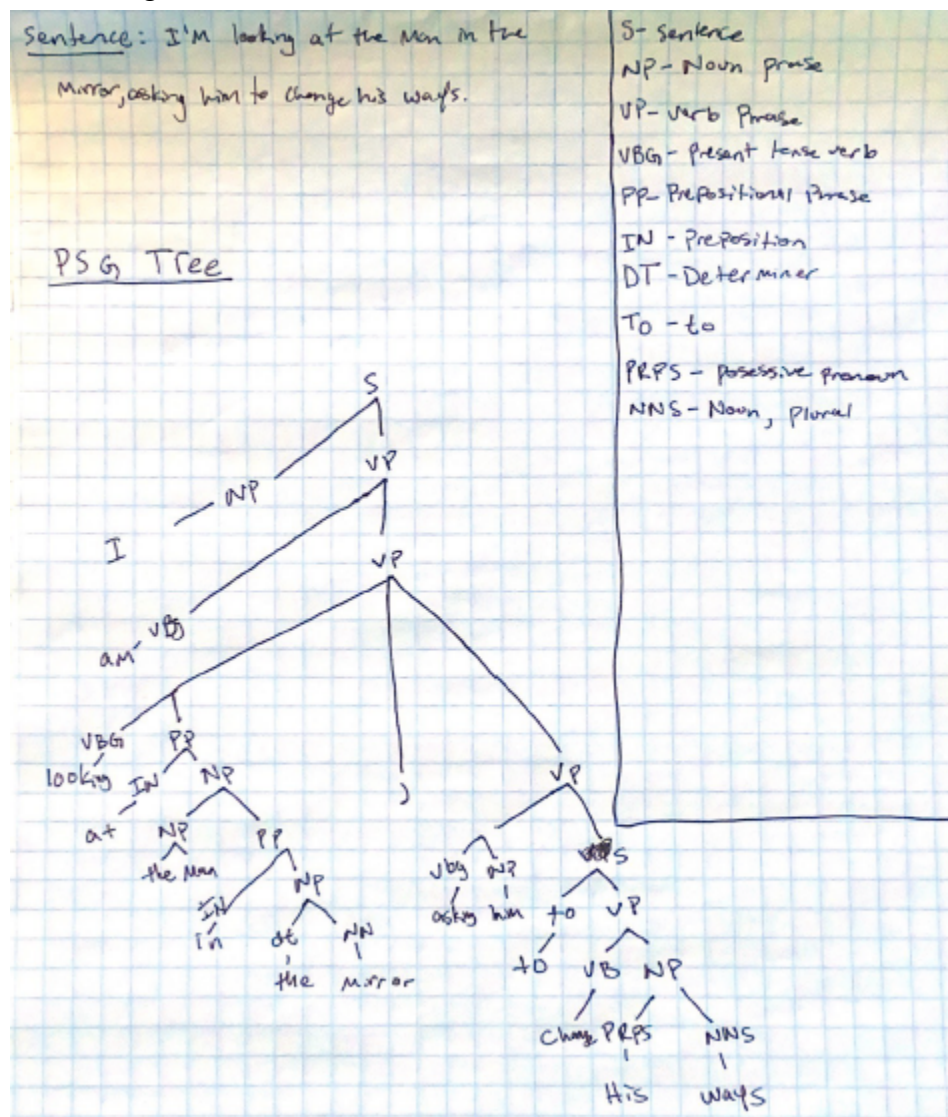 Sentence: I'm looking at the Man in the
Mirror, asking him to change his ways.
S- Sentence
NP- Noun prase
VP- verb Phrase
VBG- Present tense verb
PP- Prepositional Phrase
IN - Preposition
DT - Determiner
TO - to
PRPS - posessive pronoun
NNS- Noun, Plural
PSG Tree
S
NP VP
I
VP
VBG
am
VBG PP
looking IN NP , VP
at NP PP
the Man
IN NP
in dt NN
the Mirror
vbg NP S
asking him to VP
to VB NP
Change PRPS NNS
His ways